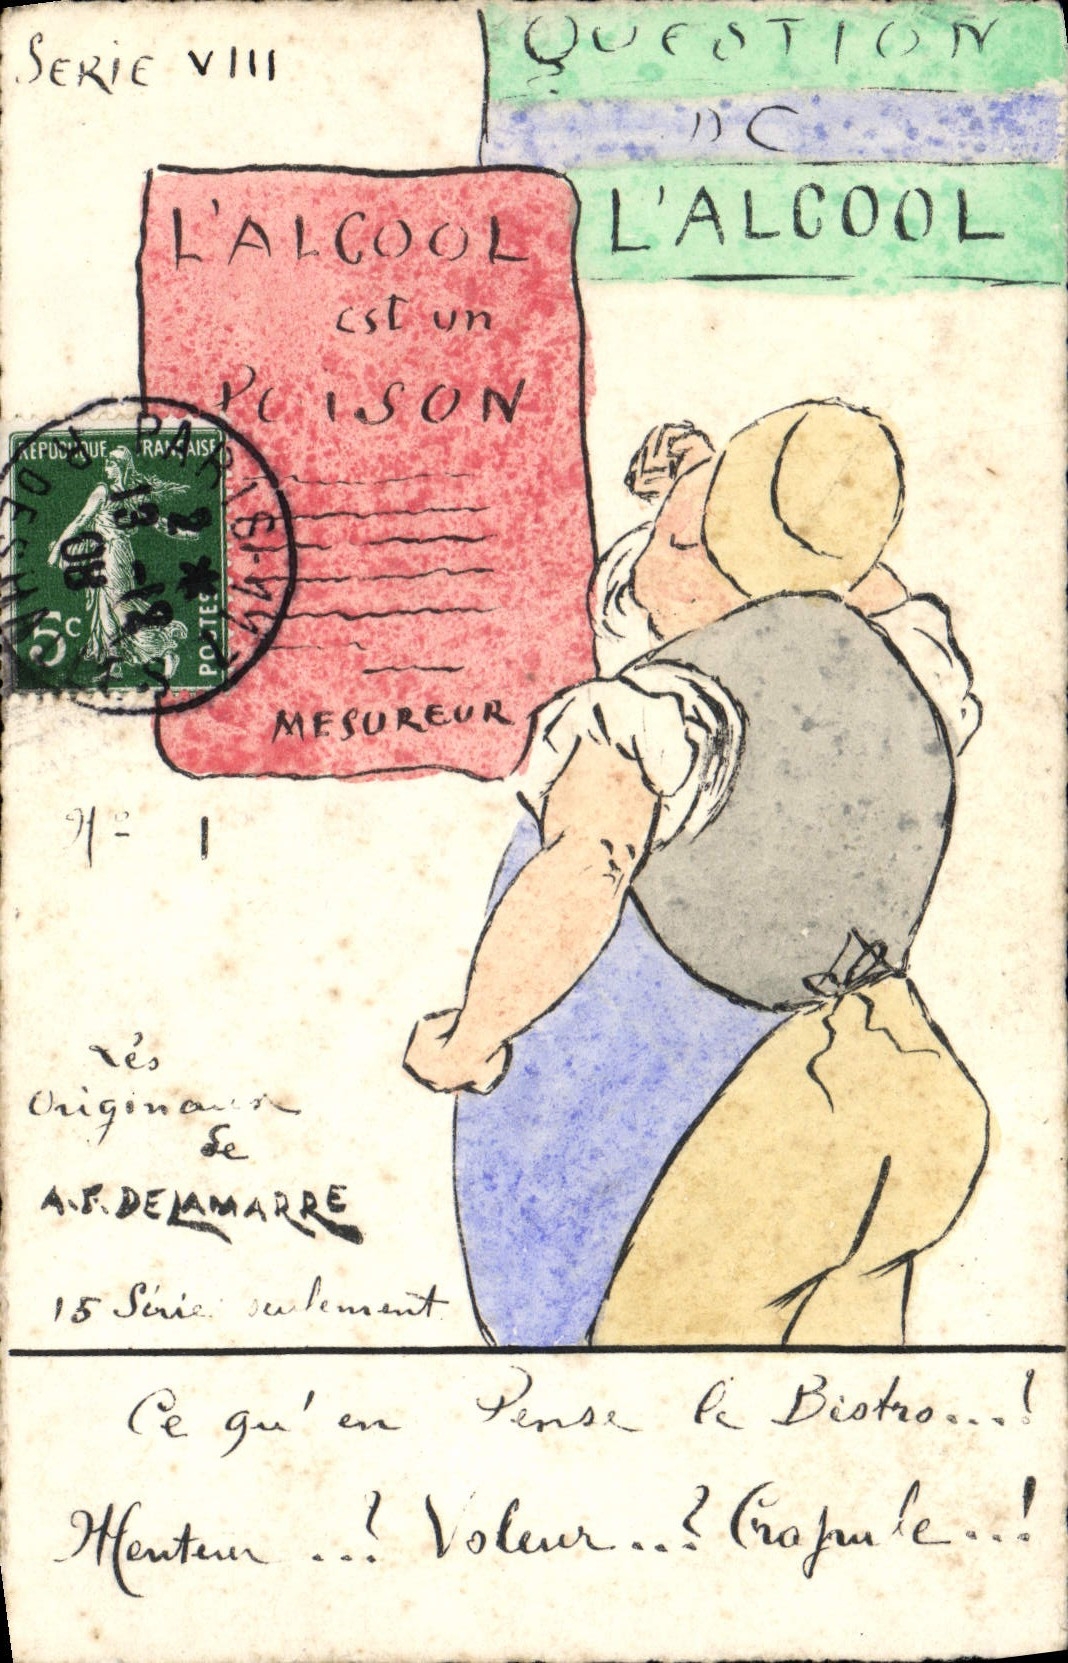 SERIE VIII
QUESTION
DE
L'ALCOOL
L'ALCOOL
est un
POISON
MESUREUR
RÉPUBLIQUE FRANÇAISE
5c
POSTES
PARIS
13 -12
08
No 1
Les
Originaux
de
A.F. DELAMARRE
15 Série seulement
Ce qu'en Pense le Bistro...!
Menteur...? Voleur...? Crapule...!